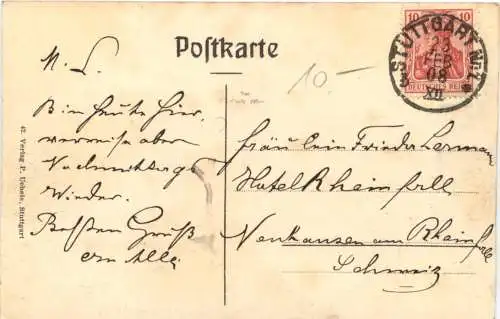 Postkarte
10
DEUTSCHES REICH
STUTTGART No. 1
23
FEB
08
XII
10.-
M. L.
Bin heute hier,
verreise aber
Nachmittags
wieder.
Besten Gruß
an Alle
Fräulein Frieda Hermann
Hotel Rheinfall
Neuhausen am Rheinfall
Schweiz
42. Verlag P. Uebele, Stuttgart